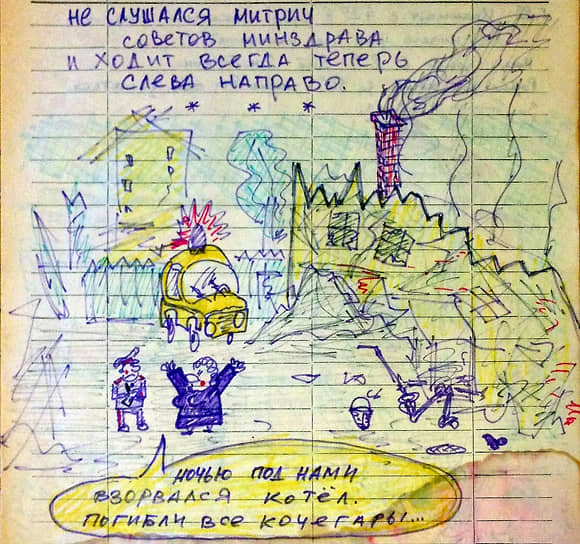 НЕ СЛУШАЛСЯ МИТРИЧ
СОВЕТОВ МИНЗДРАВА
И ХОДИТ ВСЕГДА ТЕПЕРЬ
СЛЕВА НАПРАВО.
* * *
НОЧЬЮ ПОД НАМИ
ВЗОРВАЛСЯ КОТЁЛ.
ПОГИБЛИ ВСЕ КОЧЕГАРЫ...